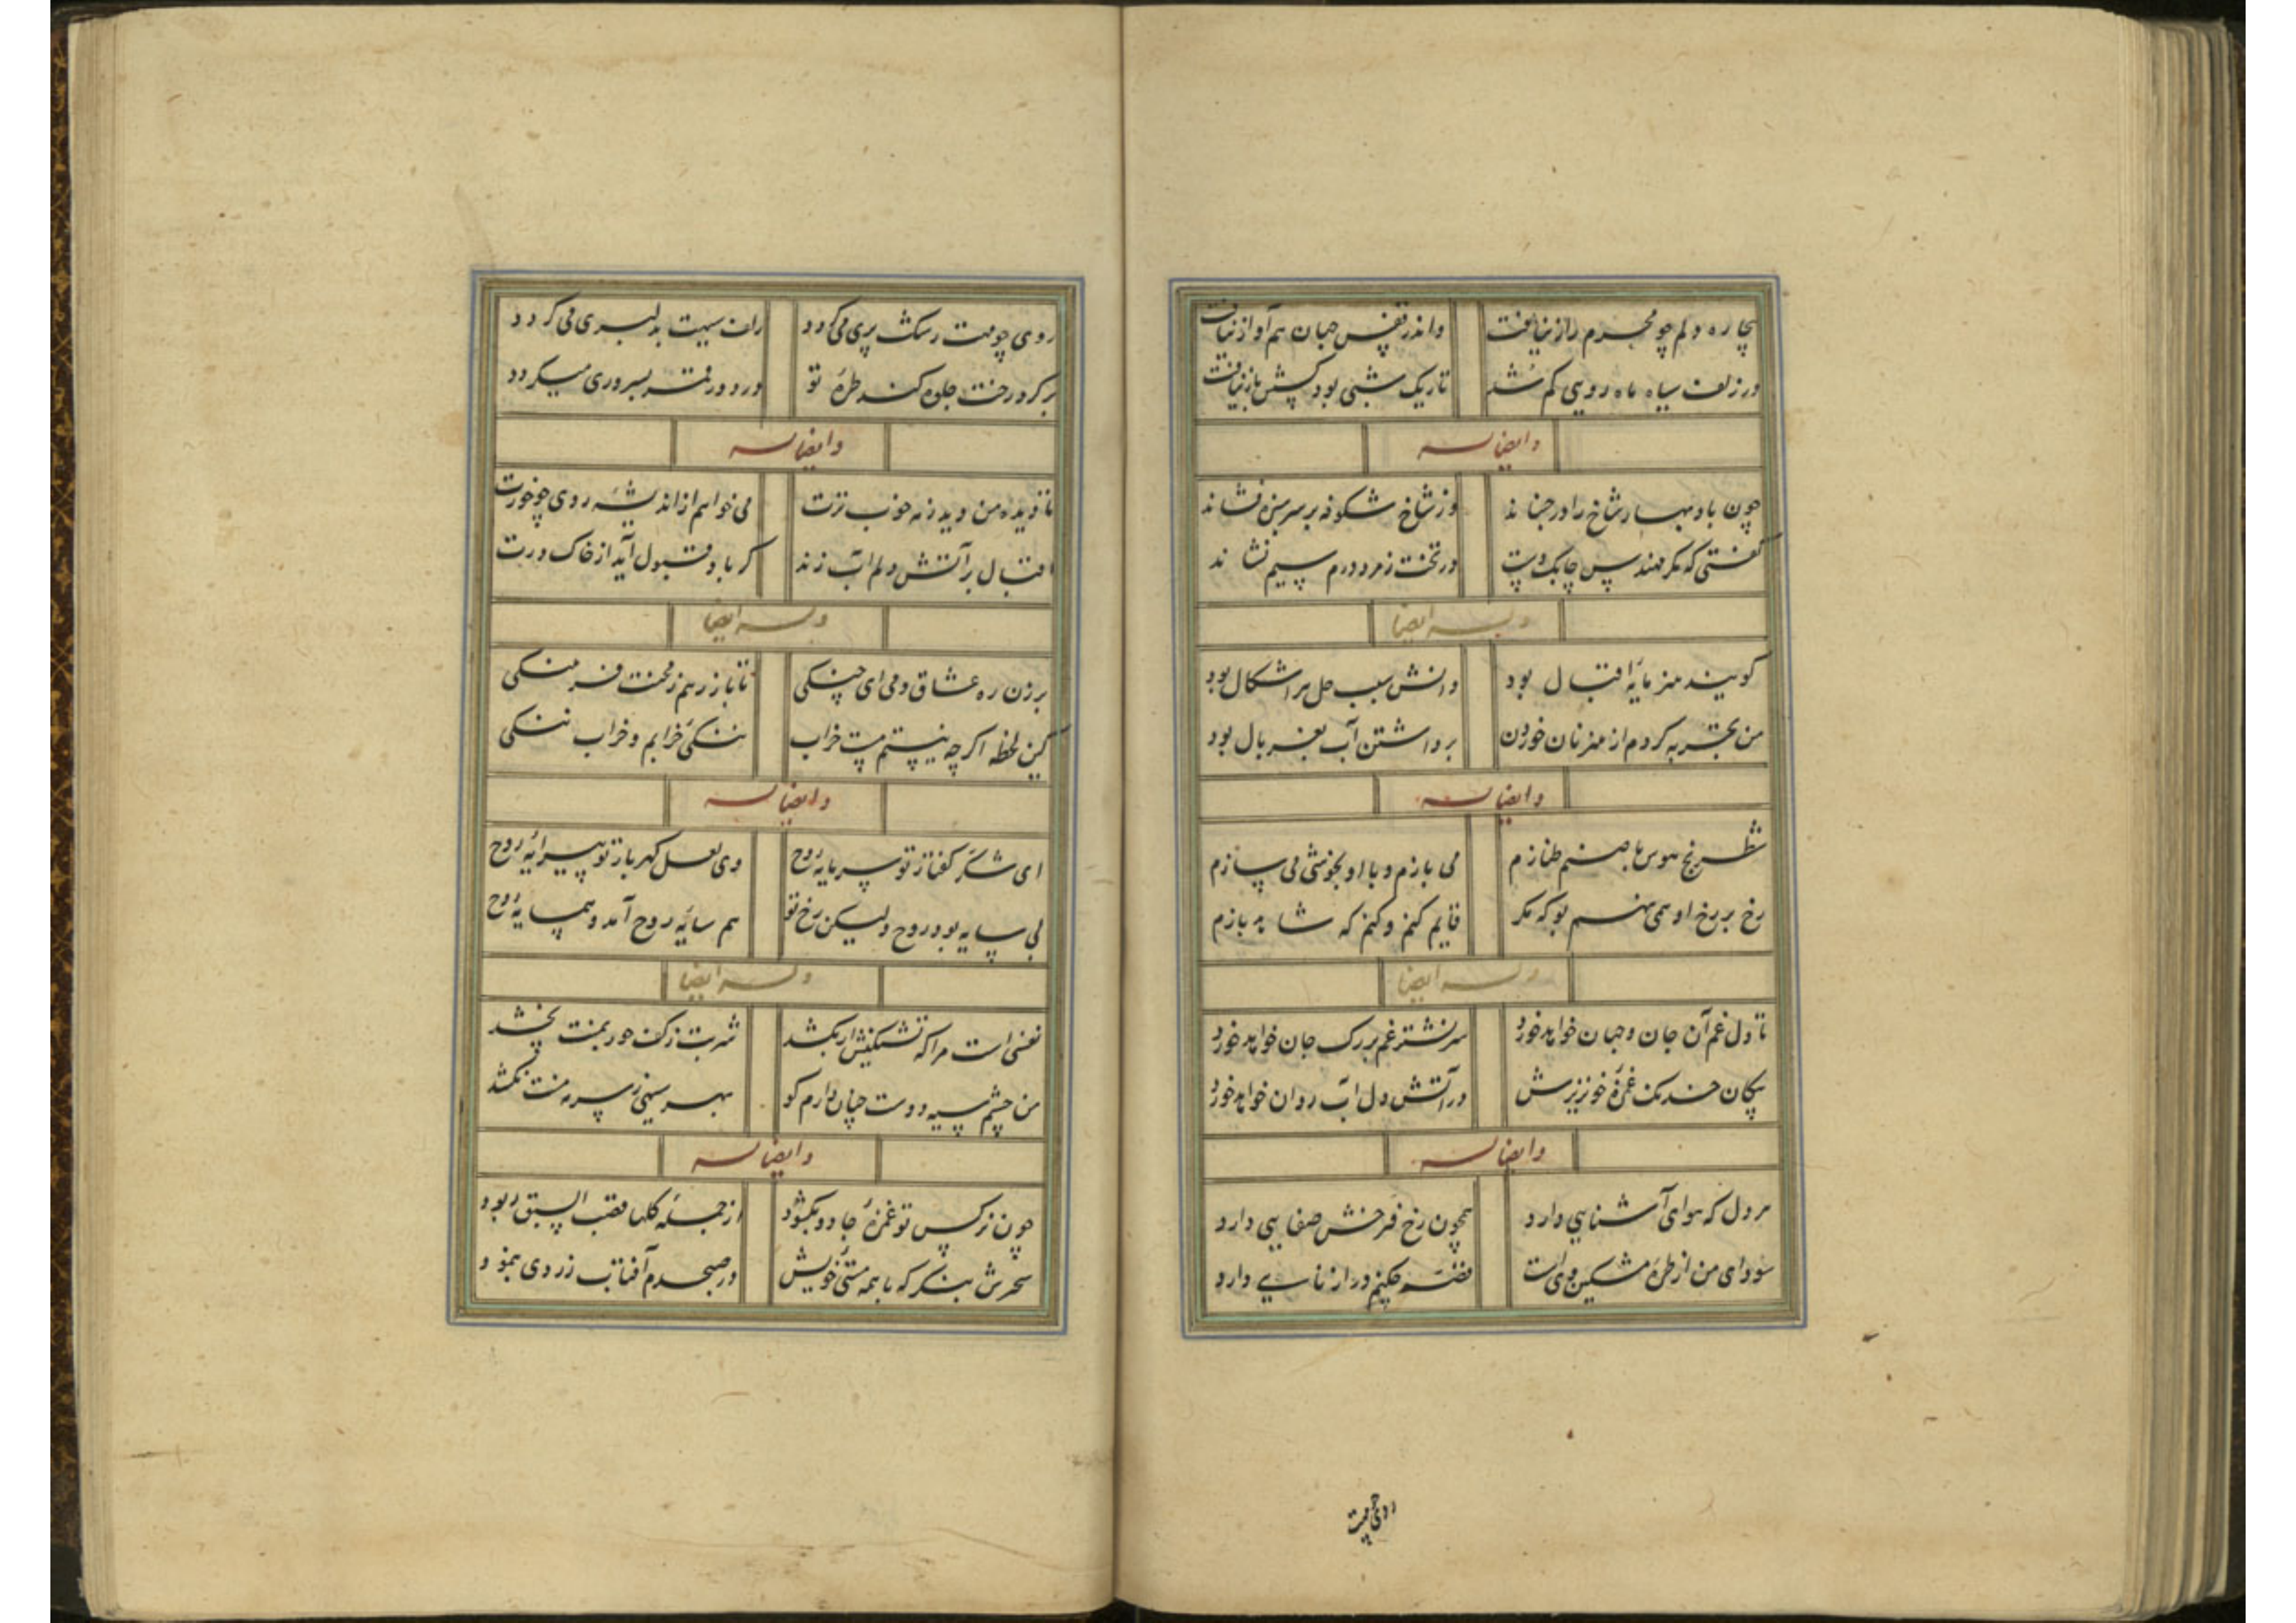 بیچاره دلم چو محرم راز نیافت
واندر قفس جهان هم آواز نیافت
در زلف سیاه ماه رویی کم شد
تاریک شبی بود کسش باز نیافت
وایضا له
چون باد بهار شاخ را در جنباند
وز شاخ شکوفه بر سر سبزه فشاند
کفتی که مکر مهندس چابک دست
در تخت زمرد درم سیم نشاند
وله ایضا
کویند هنر مایه اقبال بود
دانش سبب حل هر اشکال بود
من تجربه کردم از هنر نان خوردن
برداشتن آب بغربال بود
وایضا له
شطرنج هوس با صنم طنازم
می بازم و با او بخوشی می سازم
رخ بر رخ او همی نهم بو که مکر
قایم کنم و کنم که شاهد بازم
وله ایضا
تا دل غم آن جان و جهان خواهد خورد
سر نشتر غم بر رک جان خواهد خورد
پیکان خدنک غمزه خونریزش
در آتش دل آب روان خواهد خورد
وایضا له
هر دل که هوای آشنایی دارد
همچون رخ فرخش صفایی دارد
سودای من از طره مشکین وی است
قصه چکنم دراز نایی دارد
روی چو مهت
روی چو مهت رشک پری می کردد
زلف سیهت بدلبری می کردد
بر کرد رخت جلوه کند طره تو
در دور قمر بسروری میکردد
وایضا له
تا دیده من دید رخ خوب ترت
می خواهم از اندیشه روی چو خورت
اقبال بر آتش دلم آب زند
کر باد قبول آید از خاک درت
وله ایضا
بر زن ره عشاق دمی ای چنکی
تا باز رهم ز محنت فرهنکی
کین لحظه اکر چه نیستم مست خراب
ننکی خرابم و خراب ننکی
وایضا له
ای شکر کفتار تو سرمایه روح
وی لعل کهربار تو پیرایه روح
بی سایه بود روح ولیکن رخ تو
هم سایه روح آمد و همسایه روح
وله ایضا
نفسی است مرا که تشنکیش ار بکشد
شربت ز کف حور بمنت نچشد
من چشم سیه دوست چنان دارم کو
بهر سینی ز سرمه منت نکشد
وایضا له
چون نرکس تو غمزه جادو بکشود
از جمله کلها قصب السبق ربود
سحرش بنکر که با همه مستی خویش
در صبحدم آفتاب زردی بنمود